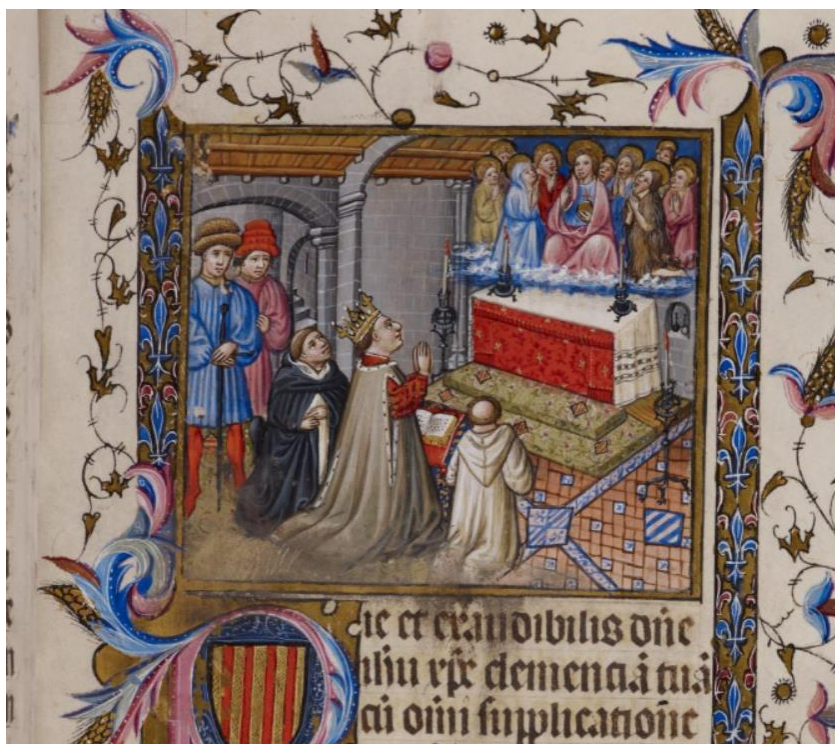 Pie et exaudibilis dn̄e
ihū xp̄e clemenciā tuā
cū om̄i supplicatione